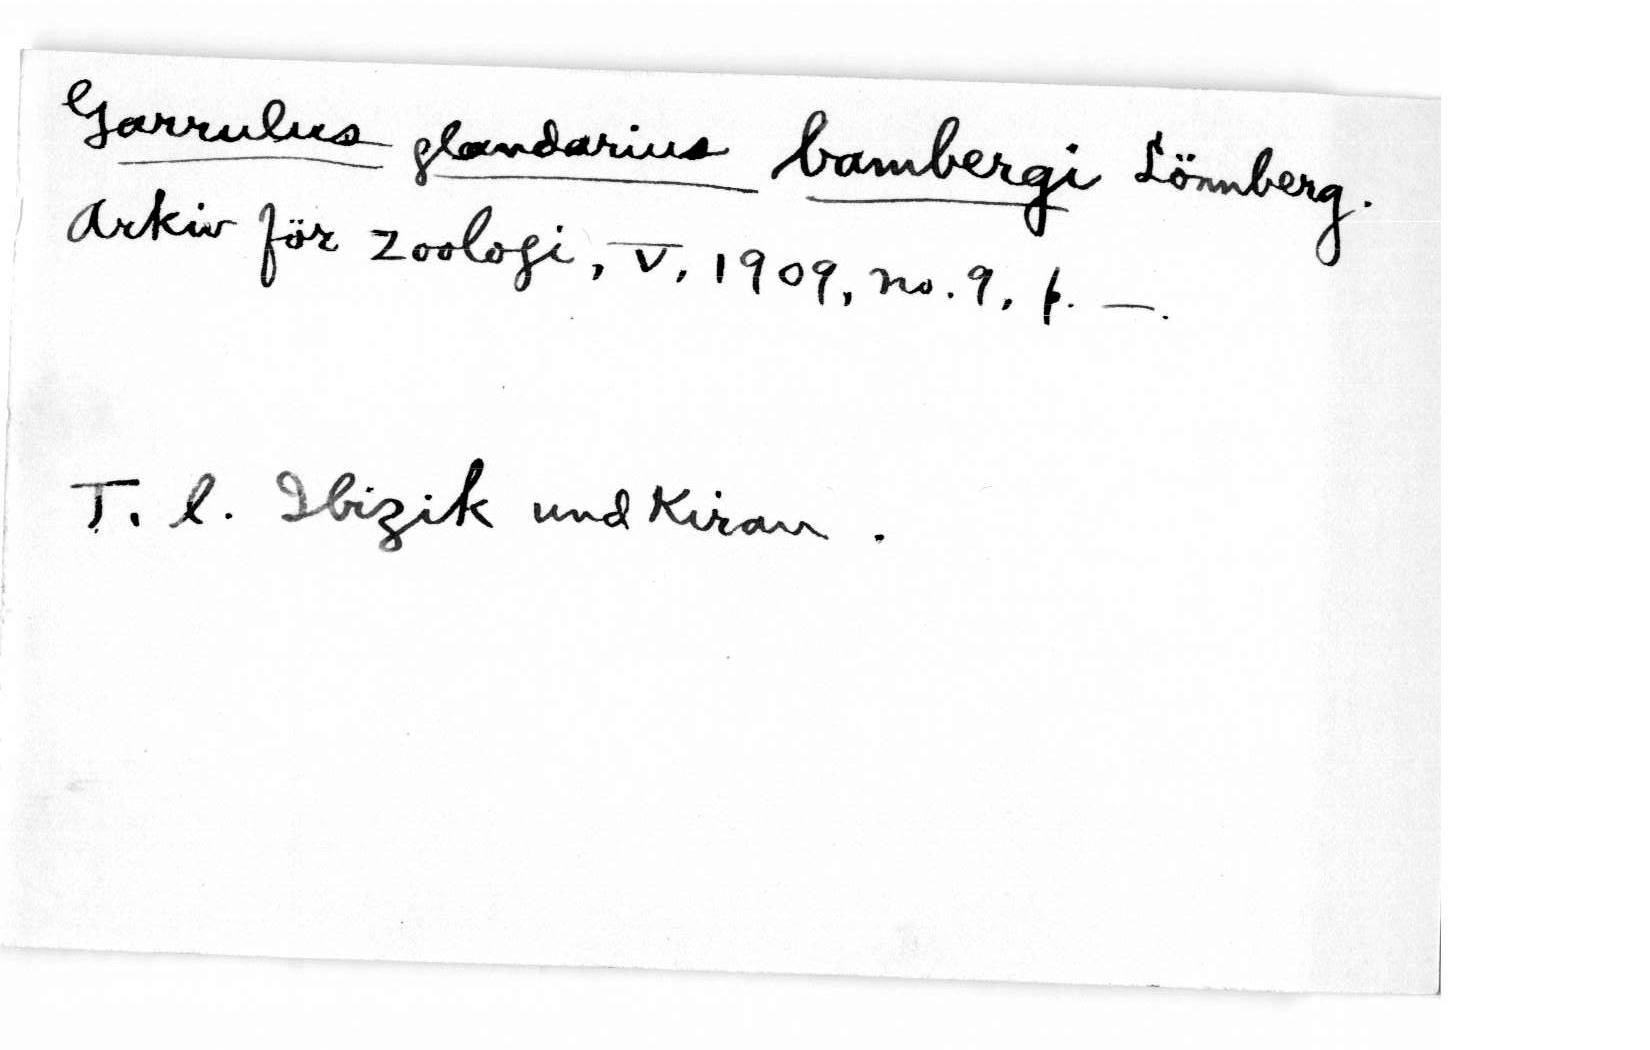 Garrulus glandarius bambergi Lönnberg.
Arkiv för Zoologi, V, 1909, no. 9, p. —.
T. l. Ibizik und Kiran.